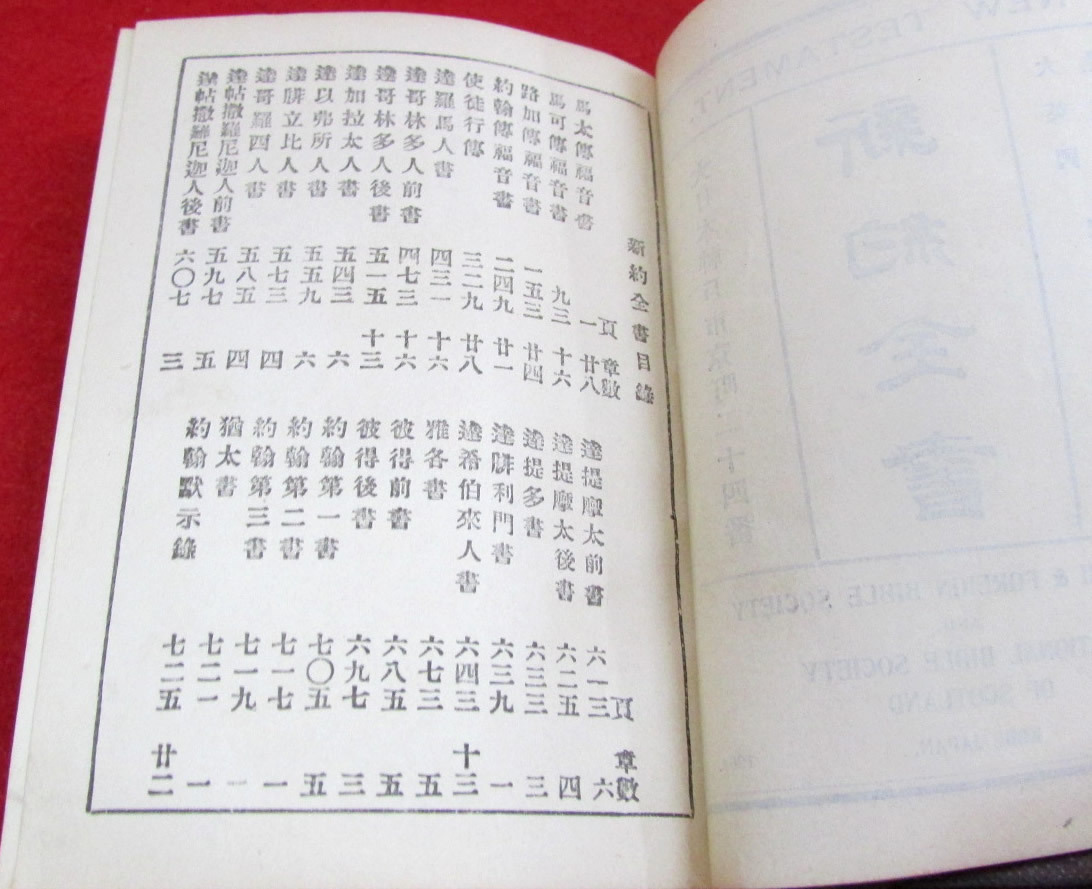 新約全書目錄
頁 章數
馬太傳福音書 一 廿八
馬可傳福音書 九三 十六
路加傳福音書 一五三 廿四
約翰傳福音書 二四九 廿一
使徒行傳 三二九 廿八
達羅馬人書 四三一 十六
達哥林多人前書 四七三 十六
達哥林多人後書 五一五 十三
達加拉太人書 五四三 六
達以弗所人書 五五九 六
達腓立比人書 五七三 四
達哥羅西人書 五八五 四
達帖撒羅尼迦人前書 五九七 五
達帖撒羅尼迦人後書 六〇七 三
頁 章數
達提摩太前書 六一三 六
達提摩太後書 六二五 四
達提多書 六三三 三
達腓利門書 六三九 一
達希伯來人書 六四三 十三
雅各書 六七三 五
彼得前書 六八五 五
彼得後書 六九七 三
約翰第一書 七〇五 五
約翰第二書 七一七 一
約翰第三書 七一九 一
猶太書 七二一 一
約翰默示錄 七二五 廿二
NEW TESTAMENT
新約全書
& FOREIGN BIBLE SOCIETY
BIBLE SOCIETY
OF SCOTLAND
JAPAN.